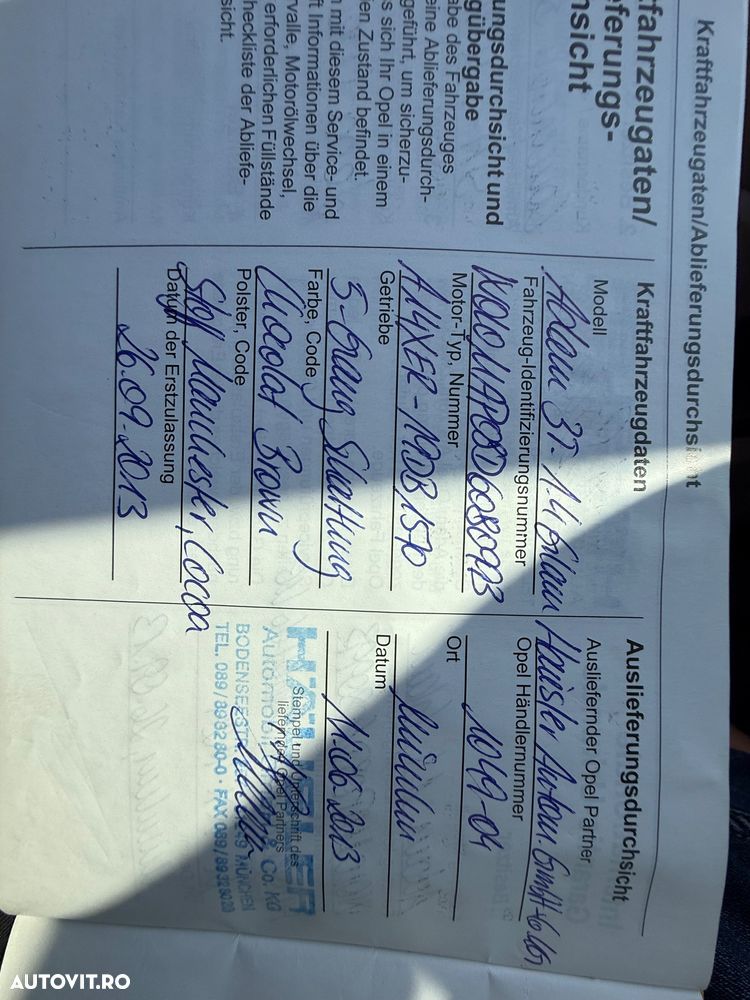 Kraftfahrzeugaten/Ablieferungsdurchsicht
tfahrzeugaten/
eferungs-
sicht
ungsdurchsicht und
gübergabe
abe des Fahrzeuges
eine Ablieferungsdurch-
geführt, um sicherzu-
s sich Ihr Opel in einem
en Zustand befindet.
n mit diesem Service- und
ft Informationen über die
rvalle, Motorölwechsel,
erforderlichen Füllstände
heckliste der Abliefe-
sicht.
Kraftfahrzeugdaten
Modell
Adam 3T. 1.4 Glam
Fahrzeug-Identifizierungsnummer
Motor-Typ, Nummer
A14XER-
Getriebe
5-Gang Schaltung
Farbe, Code
Chocolat Brown
Polster, Code
Stoff Manchester, Cocoa
Datum der Erstzulassung
26.09.2013
Auslieferungsdurchsicht
Ausliefernder Opel Partner
Häusler Autom. GmbH & Co.
Opel Händlernummer
1049-04
Ort
München
Datum
11.06.2013
Stempel und Unterschrift des
liefernden Opel Partners
HÄUSLER
Automobil & Co. KG
BODENSEESTR. MÜNCHEN
TEL. 089/89 32 80-0 · FAX 089/89 32 80 20
AUTOVIT.RO